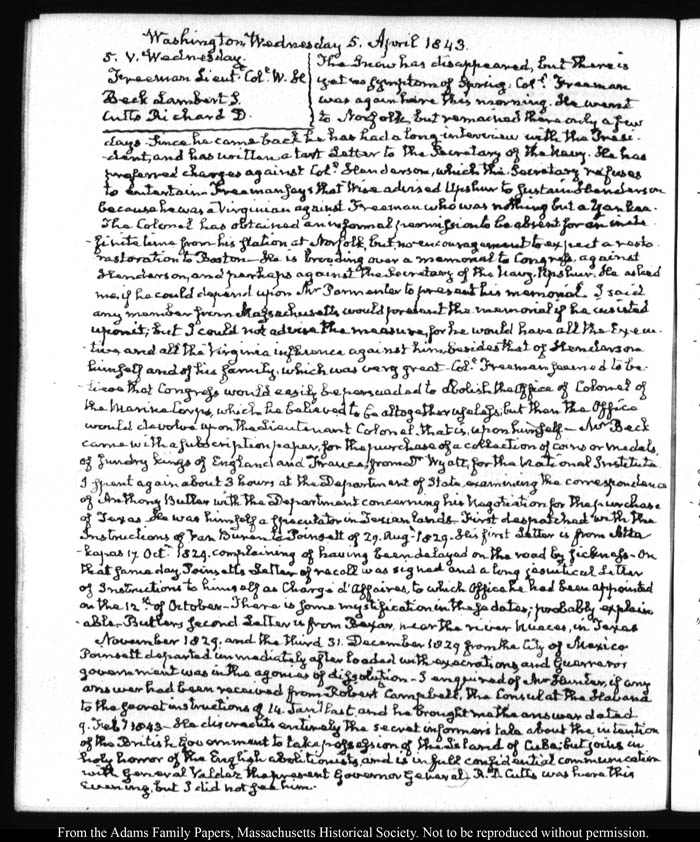 Washington, Wednesday 5. April 1843.
5. V. Wednesday.
Freeman Lieut. Col. W. H
Beck Lambert S.
Cutts Richard D.
The Snow has disappeared, but there is
yet no symptom of Spring. Col. Freeman
was again here this morning. He went
to Norfolk, but remained there only a few
days. Since he came back he has had a long interview with the Presi-
dent, and has written a tart Letter to the Secretary of the Navy. He has
preferred charges against Col. Henderson, which the Secretary refuses
to entertain. Freeman says that Wise advised Upshur to sustain Henderson
because he was a Virginian against Freeman who was nothing but a Yankee.
The Colonel has obtained an informal permission to be absent for an inde-
-finite time from his station at Norfolk, but no encouragement to expect a resto-
restoration to Boston. He is brooding over a memorial to Congress, against
Henderson, and perhaps against the Secretary of the Navy, Upshur. He asked
me, if he could depend upon Mr Parmenter to present his memorial. I said
any member from Massachusetts would present the memorial if he insisted
upon it; but I could not advise the measure, for he would have all the Execu-
-tive, and all the Virginia influence against him, besides that of Henderson
himself and of his family, which was very great. Col. Freeman seemed to be-
-lieve that Congress would easily be persuaded to abolish the Office of Colonel of
the Marine Corps, which he believed to be altogether useless; but then the Office
would devolve upon the Lieutenant Colonel. that is, upon himself — Mr Beck
came with a subscription paper, for the purchase of a collection of coins or medals,
of sundry kings of England and France, from Dr Wyatt, for the National Institute
I spent again about 3 hours at the Department of State, examining the correspondence
of Anthony Butler with the Department concerning his Negotiation for the purchase
of Texas. He was himself a speculator in Texan lands. First despatched with the
Instructions of Van Buren to Poinsett of 29. Aug. 1829. His first Letter is from Atta
-kapas 17 Oct. 1829. complaining of having been delayed on the road by sickness. On
that same day Poinsett's Letter of recall was signed and a long jesuitical Letter
of Instructions to himself as Chargé d'Affaires, to which Office he had been appointed
on the 12th of October. There is some mystification in these dates; probably explain
-able. Butlers second Letter is from Bexar, near the river Nueces, in Texas
November 1829. and the third 31. December 1829 from the City of Mexico.
Poinsett departed immediately after loaded with execrations and Guerrero's
government was in the agonies of dissolution. I enquired of Mr Hunter, if any
answer had been received from Robert Campbell, the Consul at the Havana
to the secret instructions of 14. Jany last, and he brought me the answer dated
9. Feby 1843. He discredits entirely the secret informers tale about the intention
of the British Government to take possession of the Island of Cuba; but joins in
holy horror of the English abolitionists, and is in full confidential communication
with General Valdez the present Governor General. R. D Cutts was here this
evening, but I did not see him.
From the Adams Family Papers, Massachusetts Historical Society. Not to be reproduced without permission.